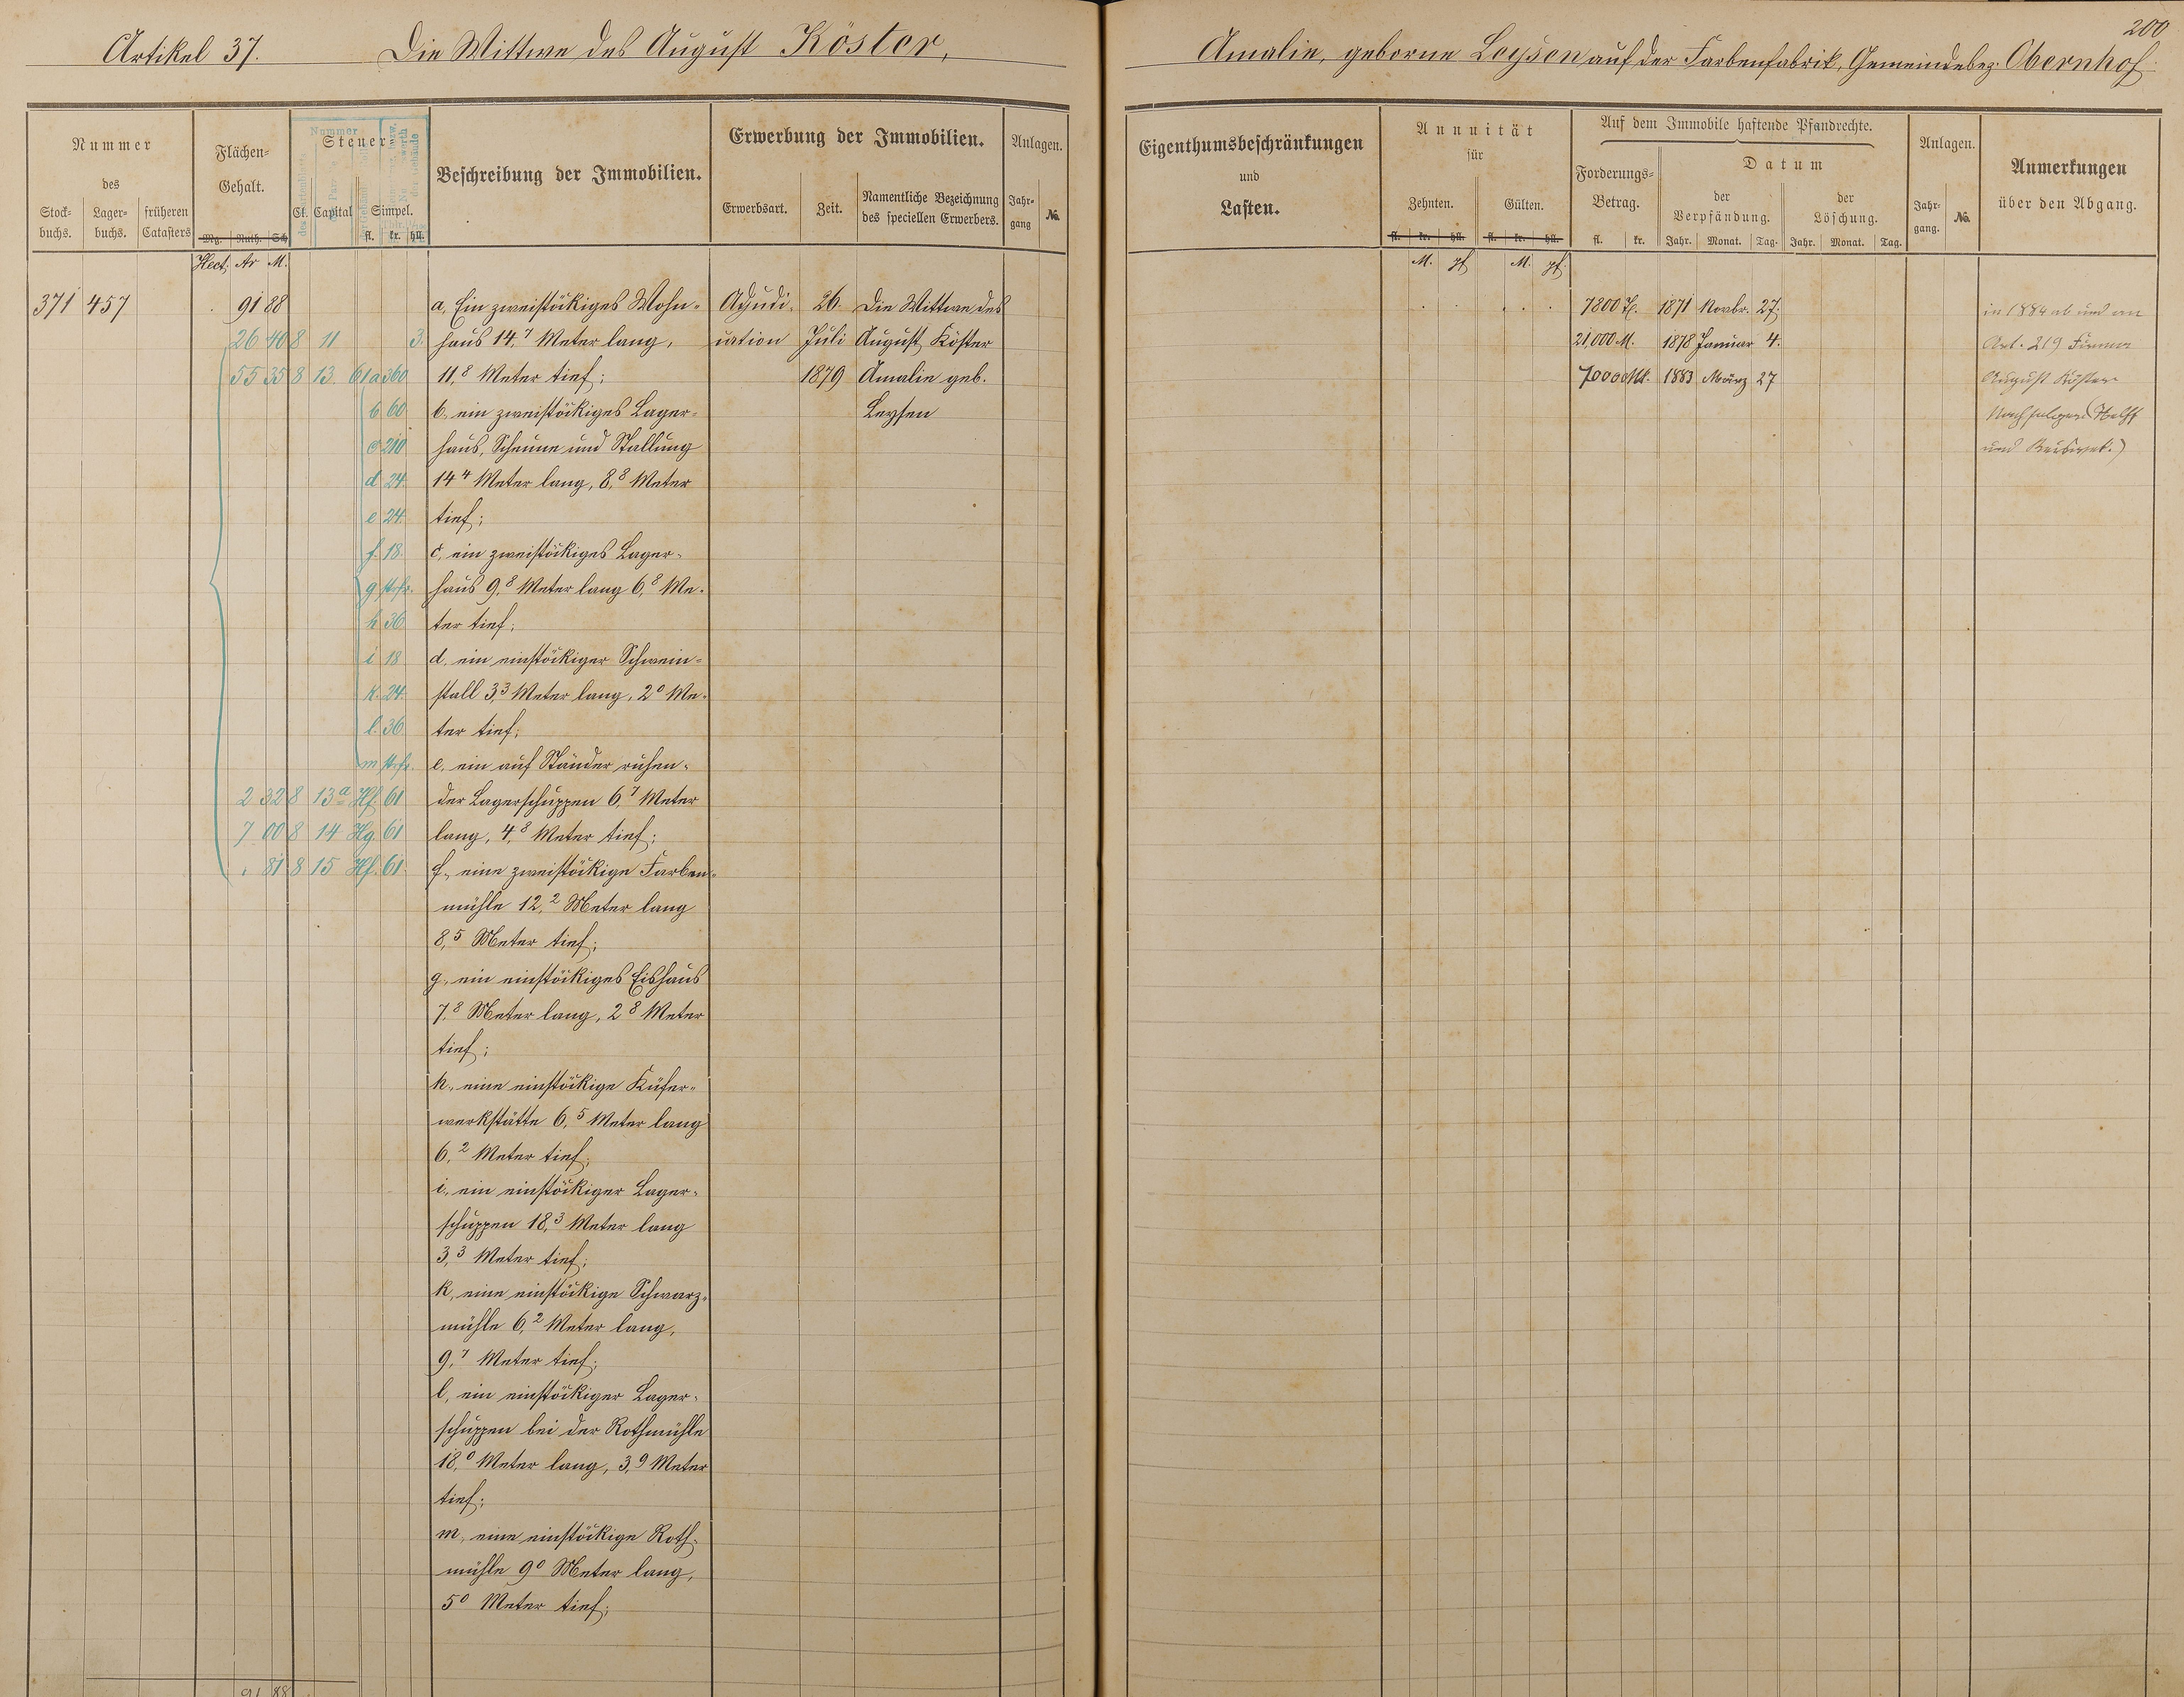 200
Artikel 37. Die Wittwe des August Köster,
Amalie, geborne Leysen auf der Farbenfabrik, Gemeindebez. Obernhof
Nummer
des
Stock-
buchs.
Lager-
buchs.
früheren
Catasters
Flächen-
Gehalt.
Mg. Ruth. Sch
Hect. Ar M.
Nummer
Steuer
Cl. Capital Simpel.
fl. kr. hll.
Beschreibung der Immobilien.
Erwerbung der Immobilien.
Erwerbsart. Zeit.
Namentliche Bezeichnung
des speciellen Erwerbers.
Anlagen.
Jahr-
gang
No.
371 457 91 88
26 40 8 11 3.
55 35 8 13. 61 a 360
b 60
c 210
d 24.
e 24.
f. 18.
g strfr.
h 36
i 18
k. 24.
l. 36
m strfr.
2 32 8 13a Hf. 61
7 00 8 14 Hg 61
. 81 8 15 Hf. 61
a, Ein zweistöckiges Wohn-
haus 14,7 Meter lang,
11,8 Meter tief;
b. ein zweistöckiges Lager-
haus, Scheune und Stallung
14 4 Meter lang, 8,8 Meter
tief;
c, ein zweistöckiges Lager-
haus 9,8 Meter lang 6,8 Me-
ter tief;
d. ein einstöckiger Schwein-
stall 3,3 Meter lang, 2 0 Me-
ter tief;
e. ein auf Ständer ruhen-
der Lagerschuppen 6,7 Meter
lang, 4,8 Meter tief;
f., eine zweistöckige Farben-
mühle 12,2 Meter lang
8,5 Meter tief;
g., ein einstöckiges Eishaus
7,8 Meter lang, 2 8 Meter
tief;
h., eine einstöckige Küfer-
werkstätte 6,5 Meter lang
6,2 Meter tief;
i., ein einstöckiger Lager-
schuppen 18,3 Meter lang
3,3 Meter tief;
k, eine einstöckige Schwarz-
mühle 6,2 Meter lang,
9,7 Meter tief;
l, ein einstöckiger Lager-
schuppen bei der Rothmühle
18,0 Meter lang, 3,9 Meter
tief;
m, eine einstöckige Roth-
mühle 9 0 Meter lang,
5 0 Meter tief;
91 88
Adjudi-
cation
26.
Juli
1879
Die Wittwe des
August Köster
Amalie geb.
Leysen
Eigenthumsbeschränkungen
und
Lasten.
Annuität
für
Zehnten. Gülten.
fl. kr. hll. fl. kr. hll.
M. pf M. pf.
Auf dem Immobile haftende Pfandrechte.
Forderungs-
Betrag.
fl. kr.
Datum
der
Verpfändung.
Jahr. Monat. Tag.
der
Löschung.
Jahr. Monat. Tag.
Anlagen.
Jahr-
gang.
No.
Anmerkungen
über den Abgang.
7800 1871 Novbr. 27.
21,000 M. 1878 Januar 4.
70000 Mk. 1883 März 27
in 1884 ab und an
Art. 219 Firma
August Köster
Nachfolger
und